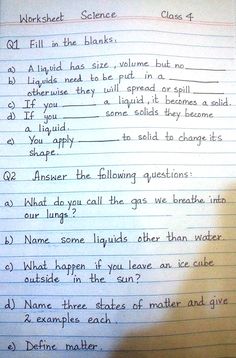 Worksheet Science Class 4
Q1 Fill in the blanks.
a) A liquid has size, volume but no
b) Liquids need to be put in a
otherwise they will spread or spill
c) If you a liquid, it becomes a solid.
d) If you some solids they become
a liquid.
e) You apply to solid to change its
shape.
Q2 Answer the following questions:
a) What do you call the gas we breathe into
our lungs?
b) Name some liquids other than water.
c) What happen if you leave an ice cube
outside in the sun?
d) Name three states of matter and give
2 examples each.
e) Define matter.